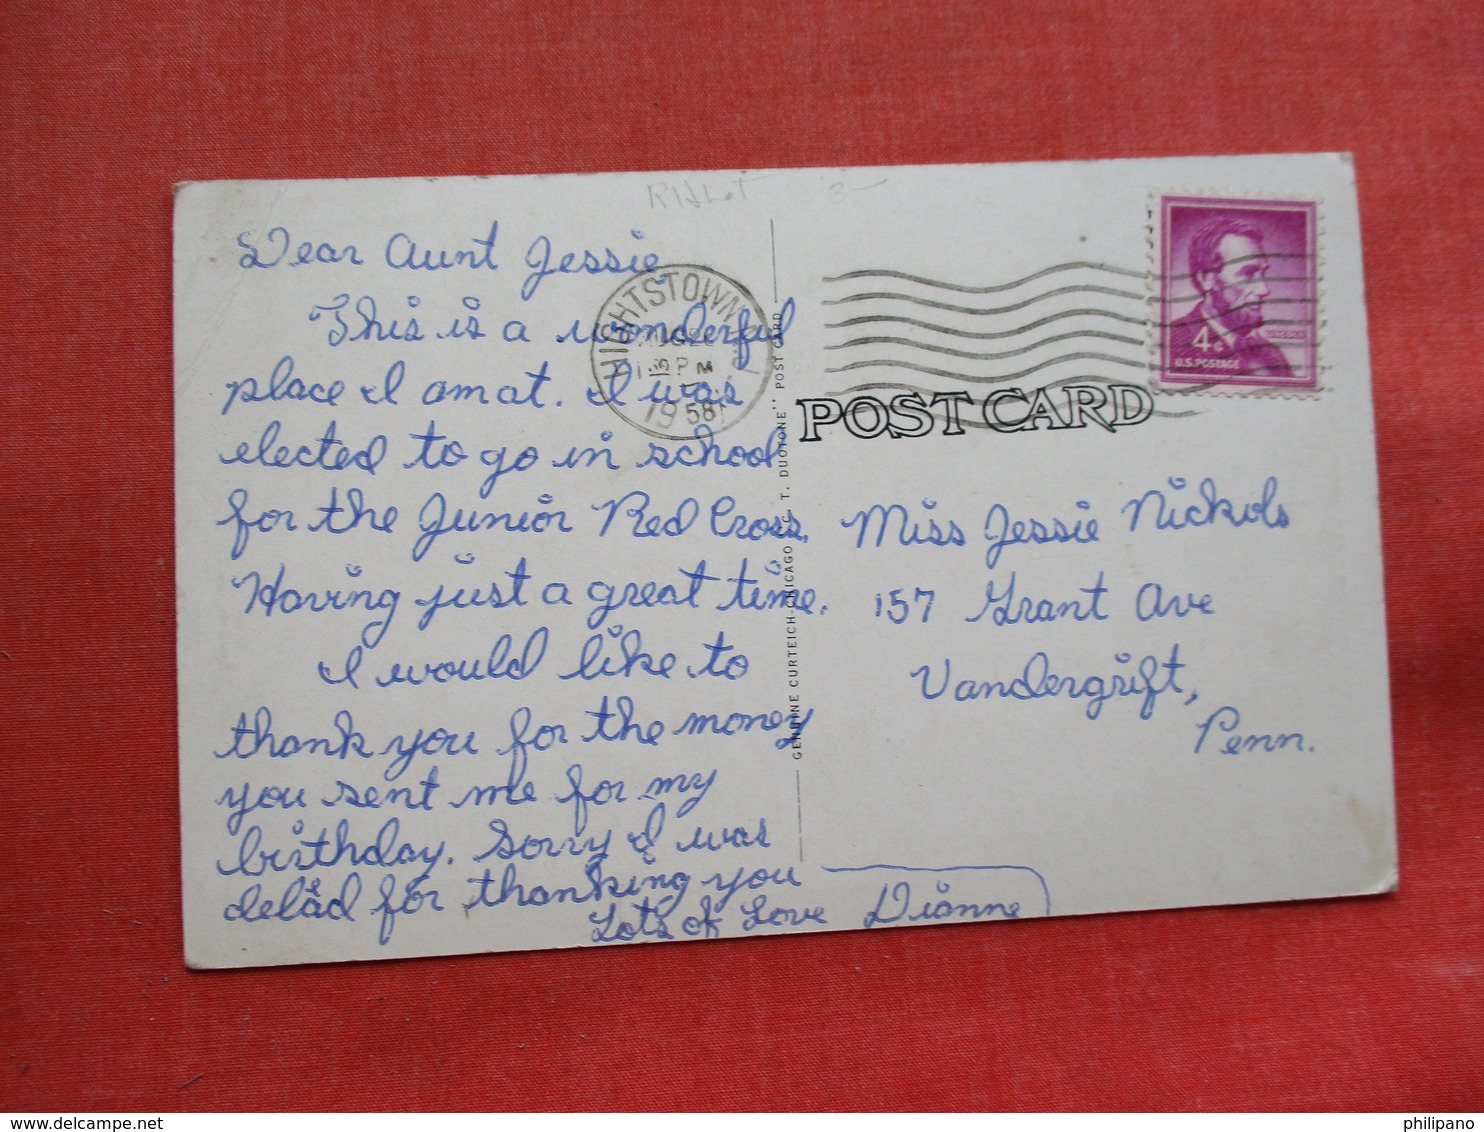 Dear Aunt Jessie,
This is a wonderful
place I am at. I was
elected to go in school
for the Junior Red Cross.
Having just a great time.
I would like to
thank you for the money
you sent me for my
birthday. Sorry I was
delad for thanking you
Lots of Love Dianne
HIGHTSTOWN
PM
1958
GENUINE CURTEICH-CHICAGO "C. T. DUOTONE" POST CARD
POST CARD
4¢
U.S. POSTAGE
Miss Jessie Nickols
157 Grant Ave
Vandergrift,
Penn.
3-
http://www.delcampe.net
philipano